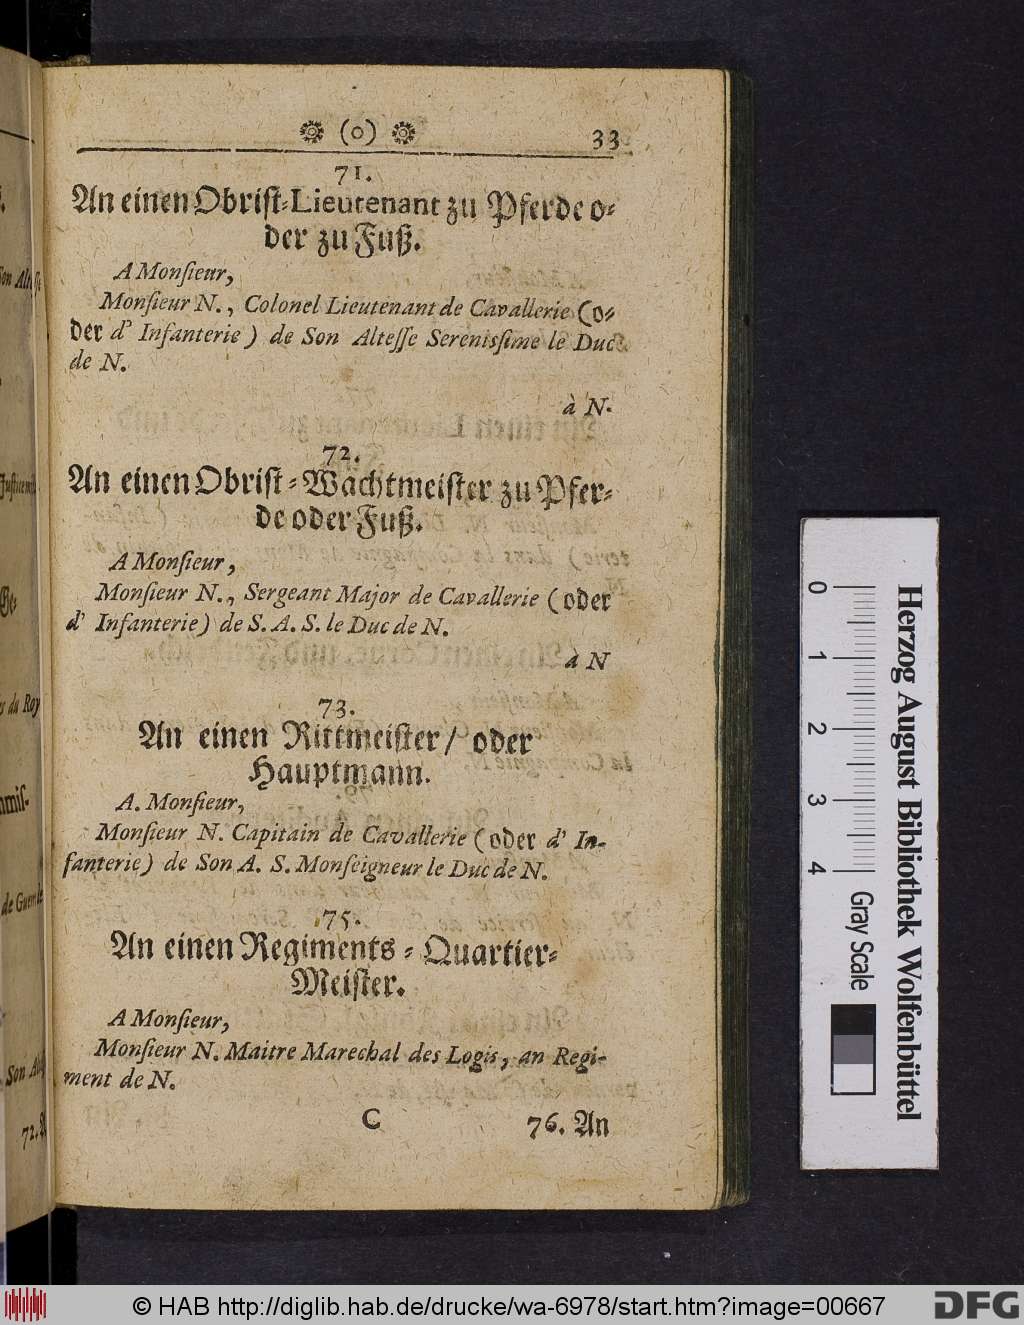 (o) 33
71.
An einen Obriſt-Lieutenant zu Pferde o-
der zu Fuß.
A Monſieur,
Monſieur N., Colonel Lieutenant de Cavallerie (o-
der d' Infanterie) de Son Alteſſe Serenisſime le Duc
de N.
à N.
72.
An einen Obriſt-Wachtmeiſter zu Pfer-
de oder Fuß.
A Monſieur,
Monſieur N., Sergeant Major de Cavallerie (oder
d' Infanterie) de S. A. S. le Duc de N.
à N
73.
An einen Rittmeiſter/ oder
Hauptmann.
A. Monſieur,
Monſieur N. Capitain de Cavallerie (oder d' In-
fanterie) de Son A. S. Monſeigneur le Duc de N.
75.
An einen Regiments-Quartier-
Meiſter.
A Monſieur,
Monſieur N. Maitre Marechal des Logis, an Regi-
ment de N.
C 76. An
du Roy
de Guerre
Son
72.
0 1 2 3 4
Gray Scale
Herzog August Bibliothek Wolfenbüttel
© HAB http://diglib.hab.de/drucke/wa-6978/start.htm?image=00667
DFG